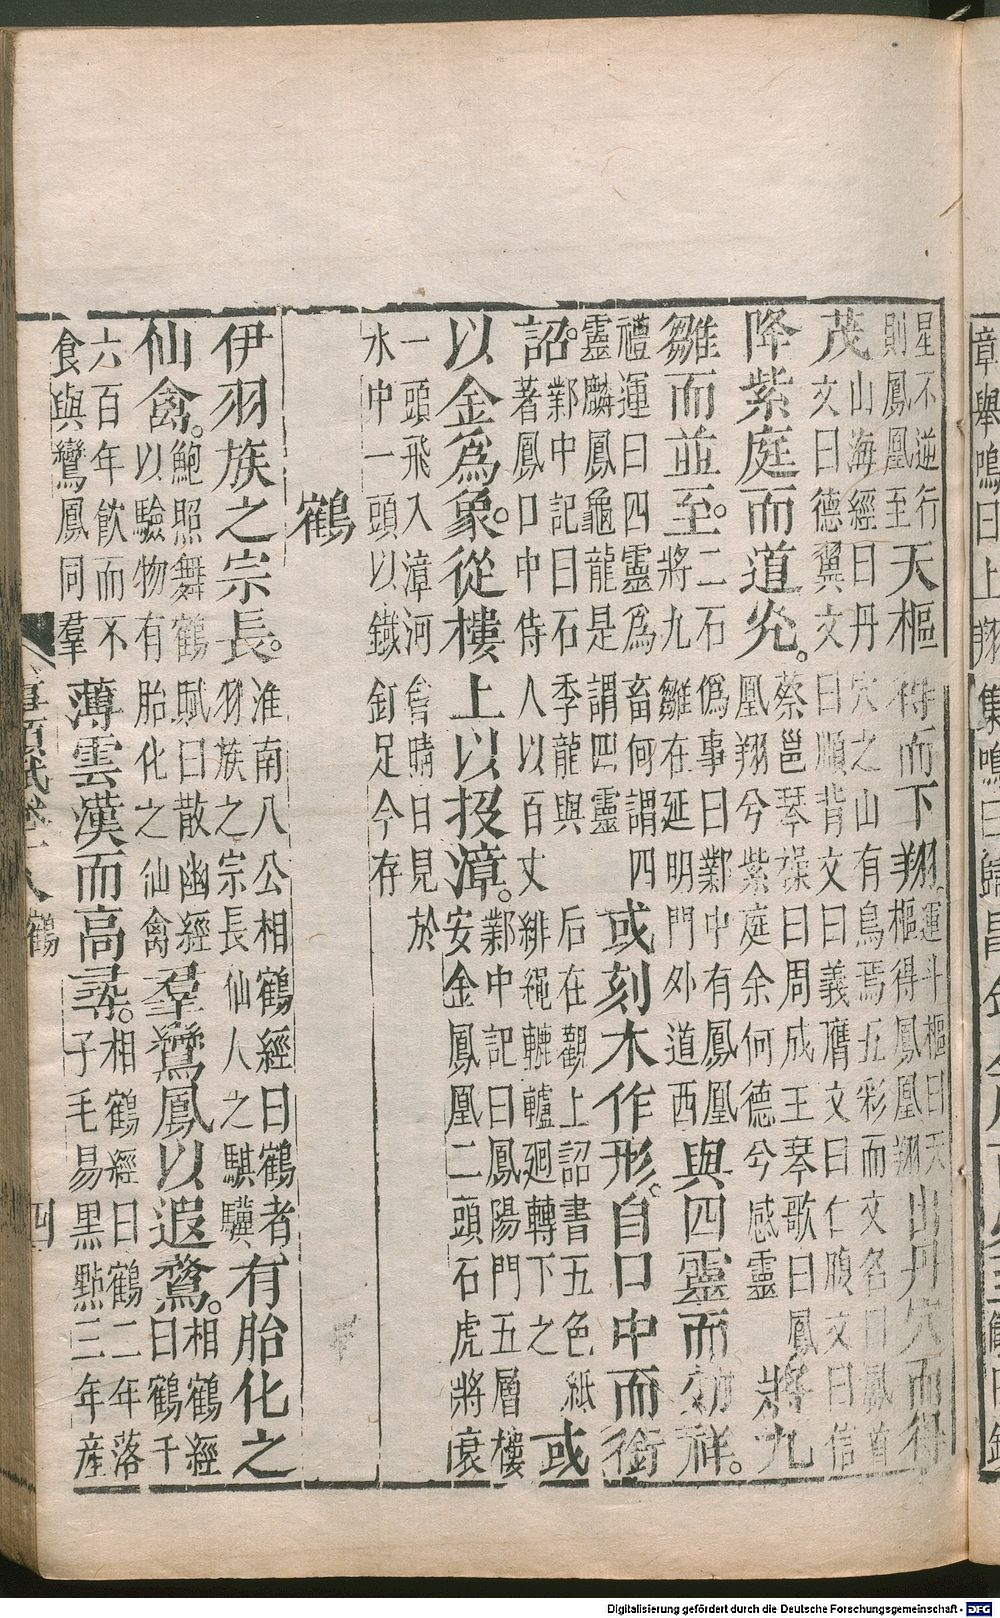 章舉鳴曰上翔集鳴曰歸昌
星不逆行則鳳凰至天樞得而下翔運斗樞曰天樞得鳳凰翔出丹穴而得
茂山海經曰丹穴之山有鳥焉五彩而文名曰鳳首文曰德翼文曰順背文曰義膺文曰仁腹文曰信
降紫庭而道光。蔡邕琴操曰周成王琴歌曰鳳凰翔兮紫庭余何德兮感靈將九
雛而並至。二石偽事曰鄴中有鳳凰將九雛在延明門外道西與四靈而効祥。
禮運曰四靈爲畜何謂四靈麟鳳龜龍是謂四靈或刻木作形。自口中而銜
詔。鄴中記曰石季龍與后在觀上詔書五色紙著鳳口中侍人以百丈緋繩轆轤迴轉下之或
以金爲象。從樓上以投漳。鄴中記曰鳳陽門五層樓安金鳳凰二頭石虎將衰
一頭飛入漳河㑹晴日見於水中一頭以鐵釘足今存
鶴
伊羽族之宗長。淮南八公相鶴經曰鶴者羽族之宗長仙人之騏驥有胎化之
仙禽。鮑照舞鶴賦曰散幽經以驗物有胎化之仙禽羣鸞鳳以遐鶩。相鶴經曰鶴千
六百年飲而不食與鸞鳳同羣薄雲漢而高㝷。相鶴經曰鶴二年落子毛易黑點三年產
事類賦卷十八 鶴 四
Digitalisierung gefördert durch die Deutsche Forschungsgemeinschaft - DFG